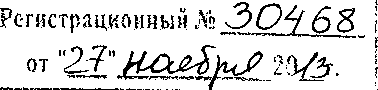 Регистрационный № 30468
от "27" ноября 2013.